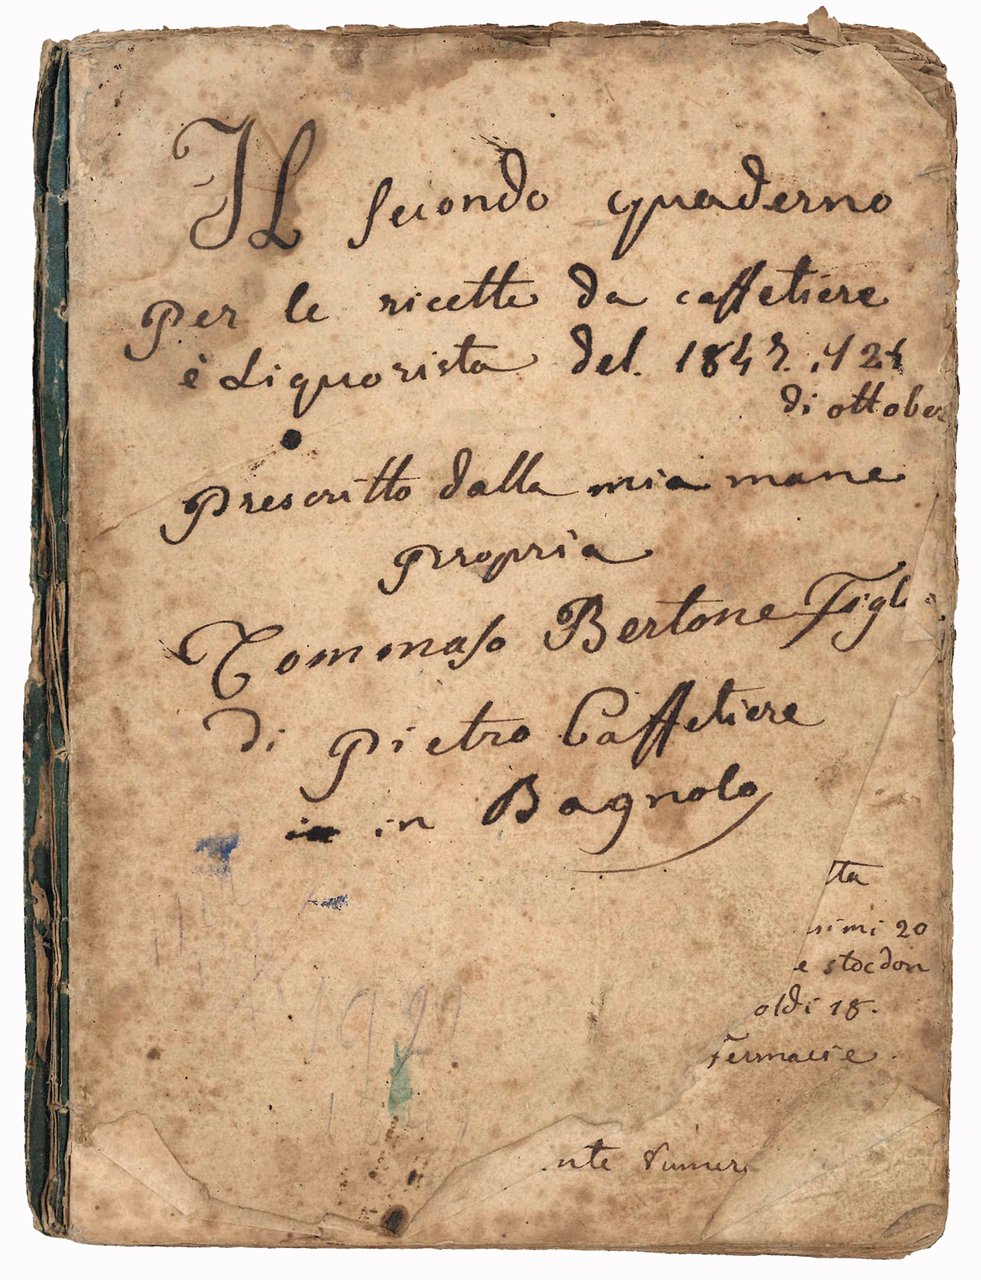 Il secondo quaderno
Per le ricette da caffetiere
è Liquorista del. 1847.
di ottober
Prescritto dalla mia mane
propria
Tommaso Bertone Figl
di Pietro Caffetiere
in Bagnolo
tta
simi 20
e stocdon
oldi 18.
Fermacie.
nte